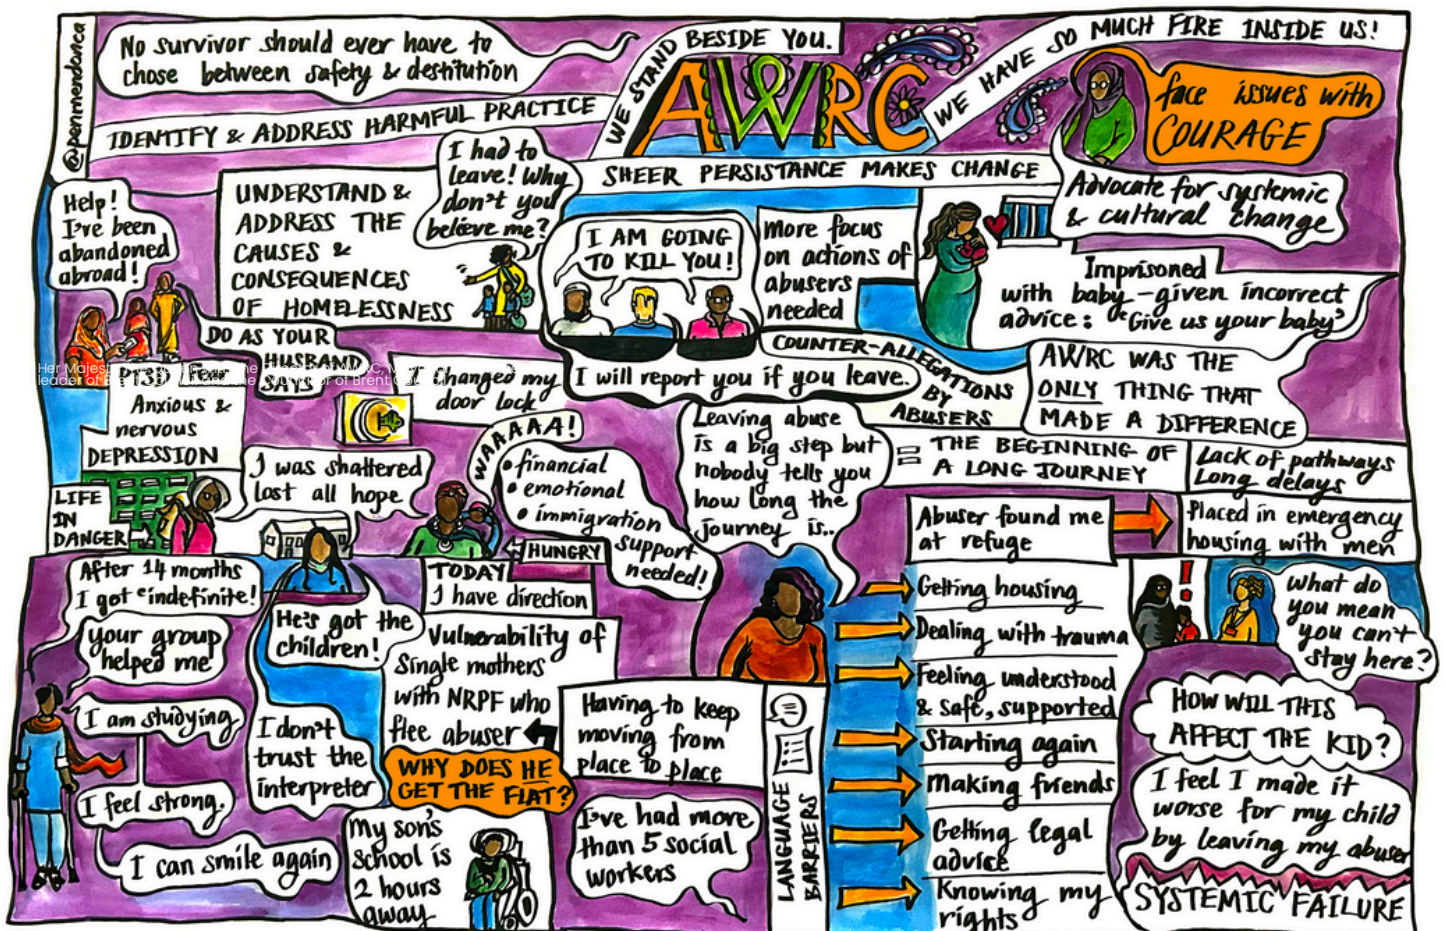 @penmendonca
No survivor should ever have to
chose between safety & destitution
IDENTIFY & ADDRESS HARMFUL PRACTICE
WE STAND BESIDE YOU.
AWRC
WE HAVE SO MUCH FIRE INSIDE US!
face issues with
COURAGE
SHEER PERSISTANCE MAKES CHANGE
Advocate for systemic
& cultural change
Help!
I've been
abandoned
abroad!
UNDERSTAND &
ADDRESS THE
CAUSES &
CONSEQUENCES
OF HOMELESSNESS
I had to
leave! Why
don't you
believe me?
I AM GOING
TO KILL YOU!
More focus
on actions of
abusers
needed
Imprisoned
with baby - given incorrect
advice: "Give us your baby"
DO AS YOUR
HUSBAND
SAYS
I changed my
door lock
I will report you if you leave.
COUNTER-ALLEGATIONS
BY
ABUSERS
AWRC WAS THE
ONLY THING THAT
MADE A DIFFERENCE
Her Majest
leader of
Anxious &
nervous
DEPRESSION
LIFE
IN
DANGER
I was shattered
lost all hope
WAAAAA!
• financial
• emotional
• immigration
support
needed!
HUNGRY
Leaving abuse
is a big step but
nobody tells you
how long the
journey is..
= THE BEGINNING OF
A LONG JOURNEY
Lack of pathways
Long delays
Abuser found me
at refuge
Placed in emergency
housing with men
After 14 months
I got 'indefinite'!
your group
helped me
I am studying
I feel strong.
I can smile again
He's got the
children!
I don't
trust the
interpreter
TODAY
I have direction
Vulnerability of
Single mothers
with NRPF who
flee abuser
WHY DOES HE
GET THE FLAT?
My son's
school is
2 hours
away
Having to keep
moving from
place to place
I've had more
than 5 social
workers
LANGUAGE
BARRIERS
Getting housing
Dealing with trauma
Feeling understood
& safe, supported
Starting again
Making friends
Getting legal
advice
Knowing my
rights
!
What do
you mean
you can't
stay here?
HOW WILL THIS
AFFECT THE KID?
I feel I made it
worse for my child
by leaving my abuser
SYSTEMIC FAILURE